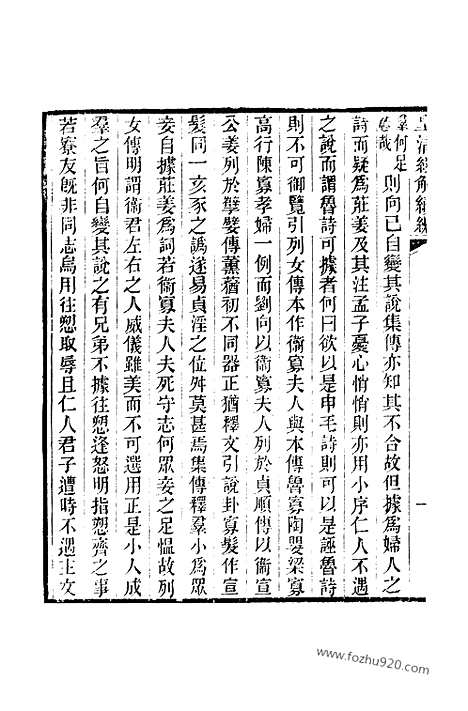 皇清經解續編
羣何足
慍哉
則向已自變其說集傳亦知其不合故但據爲婦人之
詩而疑爲莊姜及其注孟子憂心悄悄則亦用小序仁人不遇
之說而謂魯詩可據者何曰欲以是申毛詩則可以是誣魯詩
則不可御覽引列女傳本作衞寡夫人與本傳魯寡陶嬰梁寡
高行陳寡孝婦一例而劉向以衞寡夫人列於貞順傳以衞宣
公姜列於孽嬖傳薰蕕初不同器正猶釋文引說卦寡髮作宣
髮同一亥豕之譌遂易貞淫之位舛莫甚焉集傳釋羣小爲眾
妾自據莊姜爲詞若衞寡夫人夫死守志何眾妾之足慍故列
女傳明謂衞君左右之人威儀雖美而不可選用正是小人成
羣之旨何自變其說之有兄弟不據往愬逢怒明指愬齊之事
若寮友旣非同志烏用往愬取辱且仁人君子遭時不遇主文
一
www.fozhu920.com